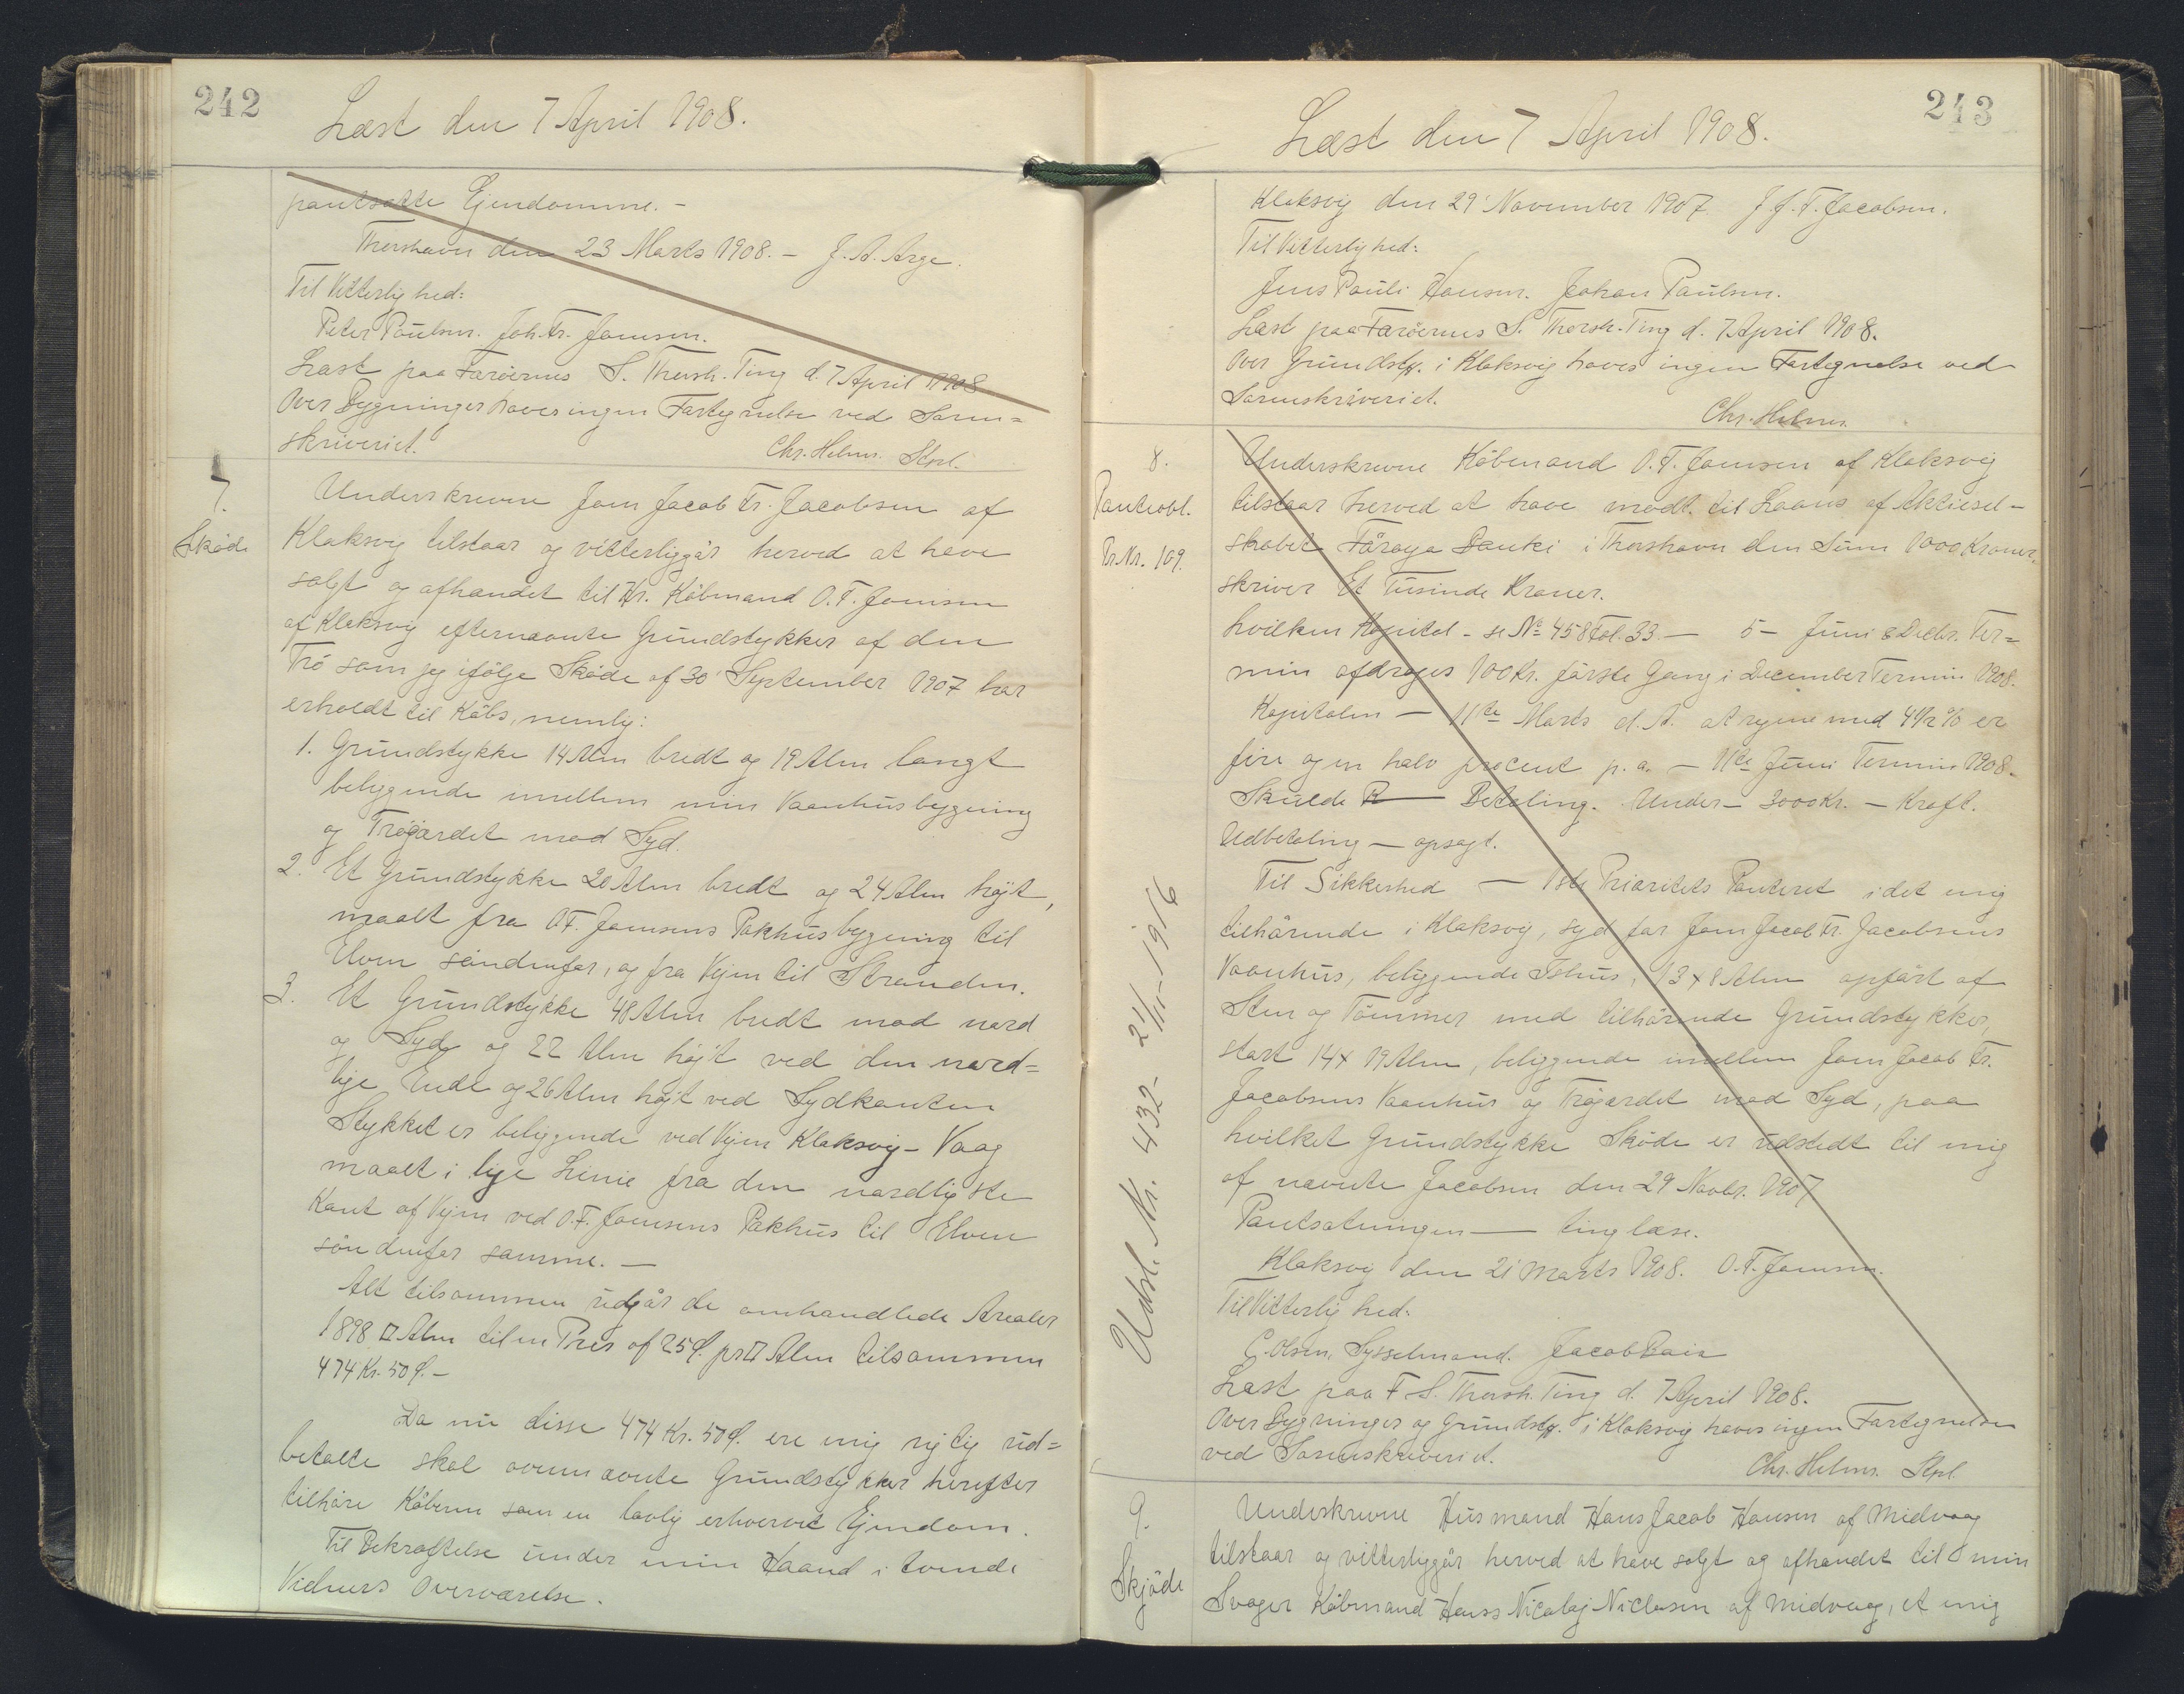 242
Læst den 7 April 1908.
pantsatte Ejendomme. -
Thorshavn den 23 Marts 1908. - J. A. Arge.
Til Vitterlighed:
Peter Poulsen. Joh. Fr. Joensen.
Læst paa Færøernes S. Thorsh. Ting d. 7 April 1908
Over Bygninger haves ingen Fortegnelse ved Soren=
skriveriet.
Chr. Helms. Kst.
7.
Skøde
Underskrevne Joen Jacob Fr. Jacobsen af
Klaksvig tilstaar og vitterliggør herved at have
solgt og afhændet til Hr. Købmand O. F. Joensen
af Klaksvig efternævnte Grundstykker af den
Trö som jeg ifølge Skøde af 30 September 1907 har
erholdt til Købs, nemlig:
1. Grundstykke 14 Alen bredt og 19 Alen langt
beliggende imellem min Vaanhusbygning
og Trøgærdet mod Syd.
2. Et Grundstykke 20 Alen bredt og 24 Alen højt,
maalt fra O F. Joensens Pakhusbygning til
Elven søndenfor, og fra Vejen til Stranden.
3. Et Grundstykke 48 Alen bredt mod nord
og Syd og 22 Alen højt ved den nord=
lige Ende og 26 Alen højt ved Sydkanten
Stykket er beliggende ved Vejen Klaksvig - Vaag
maalt i lige Linie fra den nordligste
Kant af Vejen ved O. F. Joensens Pakhus til Elven
søndenfor samme. -
Alt tilsammen udgør de omhandlede Arealer
1898 □ Alen til en Pris af 25 Ø. pr □ Alen tilsammen
474 Kr. 50 Ø. -
Da nu disse 474 Kr. 50 Ø. ere mig rigtig ud=
betalte skal ovennævnte Grundstykker herefter
tilhøre Køberen som en lovlig erhvervet Ejendom.
Til Bekræftelse under min Haand i tvende
Vidners Overværelse.
243
Læst den 7 April 1908.
Klaksvig den 29' November 1907 J. J. F. Jacobsen.
Til Vitterlighed:
Jens Pauli Hansen. Johan Paulsen.
Læst paa Færøernes S. Thorsh. Ting d. 7 April 1908.
Over Grundstk. i Klaksvig haves ingen Fortegnelse ved
Sorenskriveriet.
Chr. Helms.
8.
Panteobl.
Pr. Nr. 109.
Underskrevne Købmand O. F. Joensen af Klaksvig
tilstaar herved at have modt. til Laans af Aktiesel-
skabet Føroya Banki i Thorshavn den Sum 1000 Kroner,
skriver Et Tusinde Kroner.
hvilken Kapital - se No 458 Fol. 33. - 5 - Juni & Decbr. Ter=
min afdrages 100 Kr. første Gang i December Termin 1908.
Kapitalen - 11te Marts d. A. at regne med 4 1/2 % er
fire og en halv procent p. a. - 11te Juni Termin 1908.
Skulde R - Betaling. Under - 3000 Kr. - Kraft.
Udbetaling - opsagt.
Til Sikkerhed - 1ste Prioritets Panteret i det mig
tilhørende i Klaksvig, syd for Joen Jacob Fr. Jacobsens
Vaanhus, beliggende Ishus, 13 x 8 Alen opført af
Sten og Tømmer med tilhørende Grundstykker,
stort 14 x 19 Alen, beliggende imellem Joen Jacob Fr.
Jacobsens Vaanhus og Trøgærdet mod Syd, paa
hvilket Grundstykke Skøde er udstedt til mig
af nævnte Jacobsen den 29 Novbr. 1907
Pantsætningen - tinglæse.
Klaksvig den 21 Marts 1908. O. F. Joensen.
Til Vitterlighed:
C. Olsen, Sysselmand. Jacob
Læst paa F S. Thorsh. Ting d. 7 April 1908.
Over Bygninger og Grundstk. i Klaksvig haves ingen Fortegnelse
ved Sorenskriveriet.
Chr. Helms. Kst.
Udsl. Nr. 432 - 21/11 - 1916
9.
Skjøde
Underskrevne Husmand Hans Jacob Hansen af Midvaag
tilstaar og vitterliggør herved at have solgt og afhændet til min
Svoger Købmand Hans Nicolaj Niclasen af Midvaag, et mig